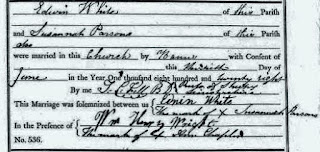 Edwin White of this Parish
and Susannah Parsons of this Parish
also
were married in this Church by Banns with Consent of
this Thirtieth Day of
June in the Year One thousand eight hundred and twenty eight
By me
This Marriage was solemnized between us Edwin White
The mark of Susannah Parsons
In the Presence of Wm Henry Wright
The mark of
No. 536.